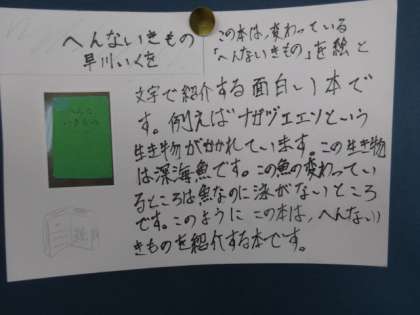 へんないきもの
早川いくを
この本は、変わっている
「へんないきもの」を絵と
文字で紹介する面白い本で
す。例えばナガヅエエソという
生き物がかかれています。この生き物
は深海魚です。この魚の変わってい
るところは魚なのに泳がないところ
です。このように この本は、へんない
きものを紹介する本です。
へんな
いきもの